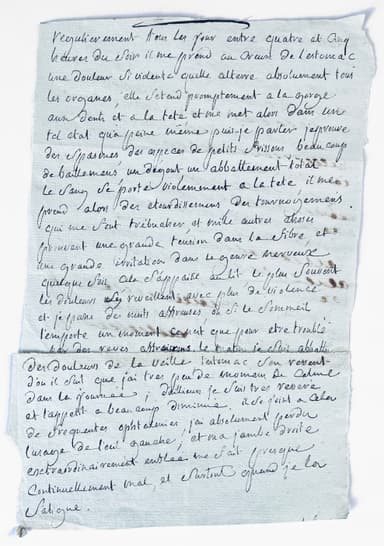 regulierement tous les jour entre quatre et cinq
heures du soir il me prend au creux de l'estomac
une douleur si vidente quelle alterre absolument tous
les organes, elle setend promptement a la gorge
aux dents et a la tete et me met alors dans un
tel etat qu'a peine meme puis je parler j'eprouve
des spasmes, des especes de petits frissons beaucoup
de baillemens un degout un abbattement total
le sang se porte violemment a la tete il me
prend alors des etourdissemens des tournoyemens
qui me font trebucher, et mille autres choses
prouvent une grande tension dans la fibre et
une grande irritation dans le genre nerveux
quelque fois cela s'appaise au lit le plus souvent
les douleurs reveillent avec plus de violence
et je passe des nuits affreuses ou si le sommeil
l'emporte un moment ce n'est que pour etre trouble
par des reves affreux le matin je suis abbattu
des douleurs de la veille l'estomac s'en ressent
d'ou il suit que j'ai tres peu de momens de calme
dans la journee ; d'ailleurs je suis tres resserre
et l'appetit a beaucoup diminue. il se joint a cela
de frequentes ophtalmies, j'ai absolument perdu
l'usage de l'oeil gauche, et ma jambe droite
extraordinairement enflee me fait presque
continuellement mal, et surtout quand je la
fatigue.